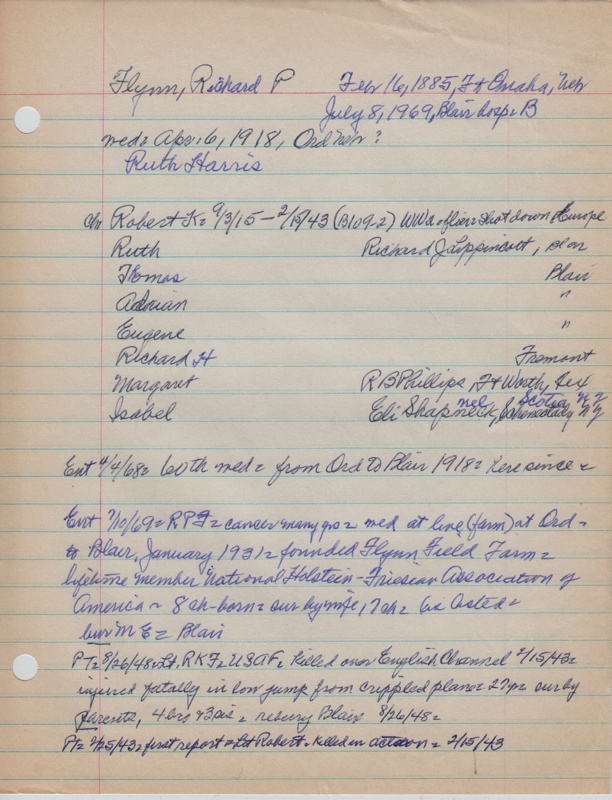 Flynn, Richard P Feb 16, 1885, Ft Omaha, Neb
July 8, 1969, Blair hosp = B
wed = Apr. 6, 1918, Ord Neb ?
Ruth Harris
ch Robert K = 9/3/15 - 2/15/43 (B109-2) WW2 flier shot down Europe
Ruth Richard J Lippincott, Blair
Thomas Blair
Adrian "
Eugene "
Richard H Fremont
Margaret R B Phillips, Ft Worth, Tex
Isabel Eli Shapneck, nel Schenectady NY Scotia NY
Ent 4/4/68 = 60th wed = from Ord to Blair 1918 = here since =
Ent 7/10/69 = RPF = cancer many yrs = wed at (farm) at Ord =
to Blair, January 1931 = founded Flynn Field Farm =
lifetime member National Holstein-Friesian Association of
America = 8 ch-born = sur by wife, 7 ch = listed =
bur M E = Blair
PT = 8/26/48 = Lt. RKF = USAF, killed over English Channel 2/15/43 =
injured fatally in low jump from crippled plane = 27yr = sur by
parents, 4 bros + 3 sis = rebury Blair 8/26/48 =
PT = 2/25/43 = first report = Lt Robert = killed in action = 2/15/43